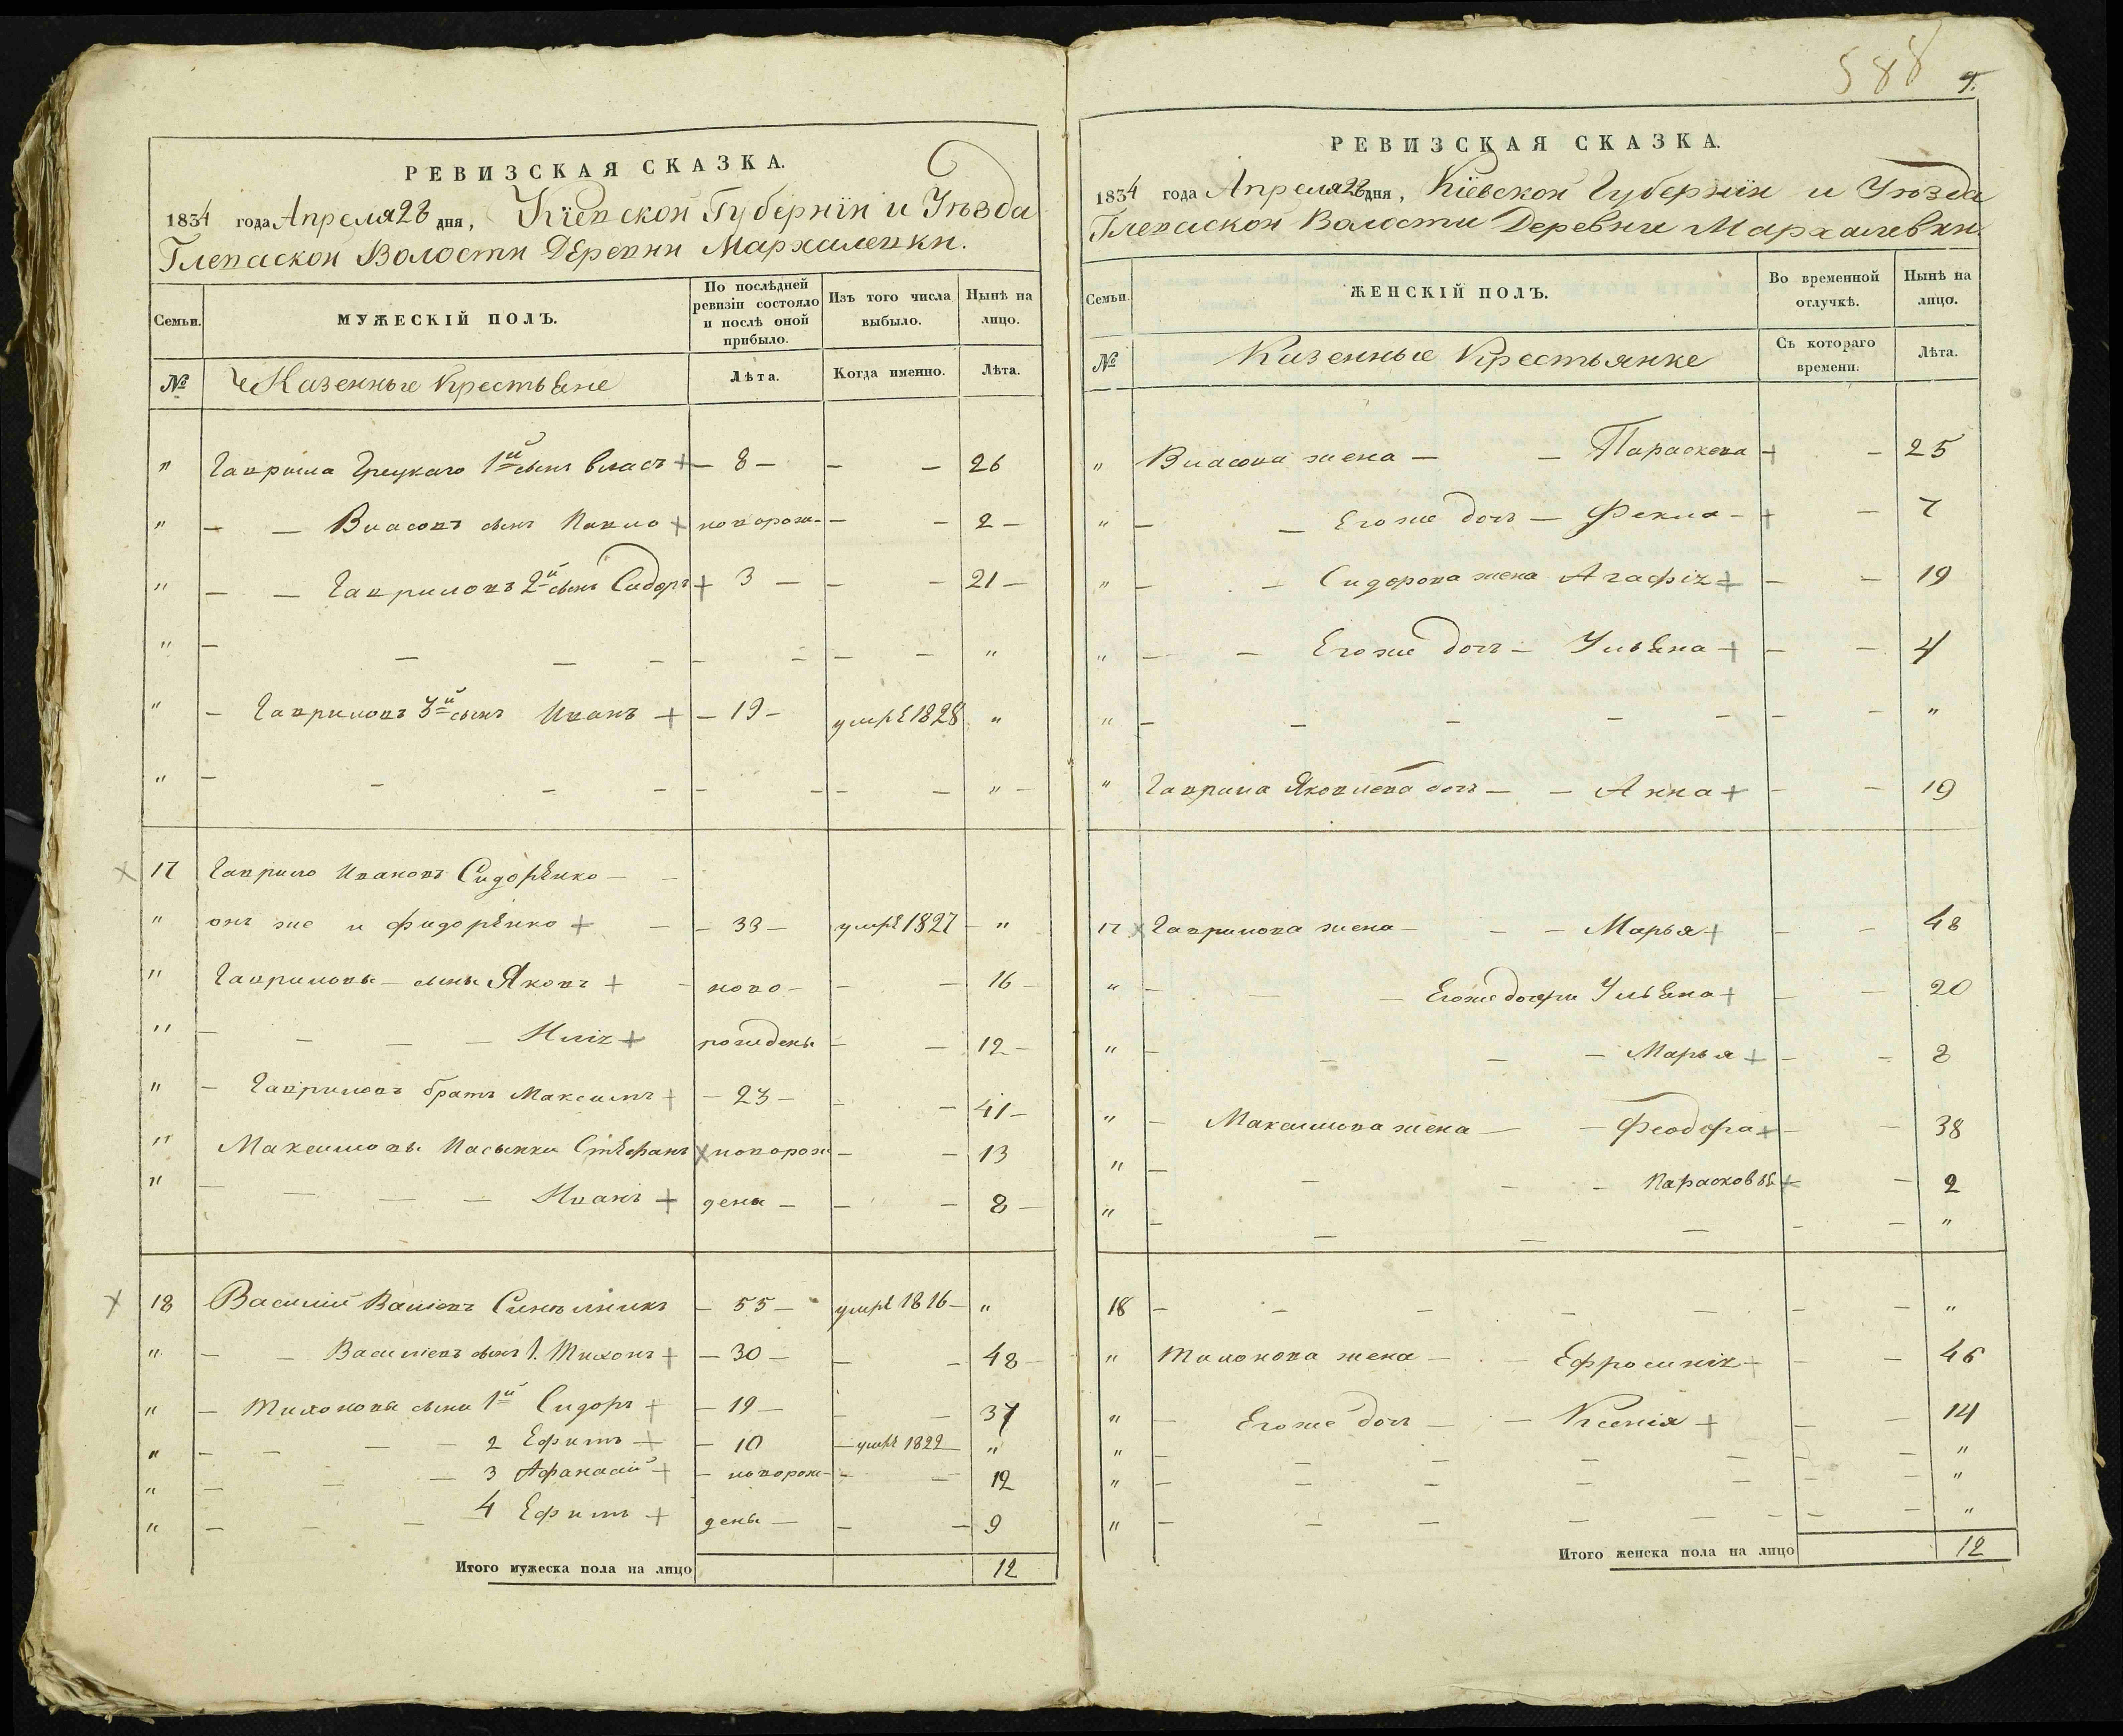 588
9.
РЕВИЗСКАЯ СКАЗКА.
1834 года Апреля 28 дня, Кіевской Губерніи и Уѣзда
Глеваской Волости Деревни Мархалевки.
Семьи.
МУЖЕСКІЙ ПОЛЪ.
По послѣдней ревизіи состояло и послѣ оной прибыло.
Изъ того числа выбыло.
Нынѣ на лицо.
№
Казенные Крестьяне
Лѣта.
Когда именно.
Лѣта.
" Гаврила Грецкаго 1й сынъ Власъ + — 8 — — — 26
" — — Власовъ сынъ Павло + новорож- — — 2 —
" — — Гавриловъ 2й сынъ Сидоръ + 3 — — — 21 —
" — — — — — — — — "
" — Гавриловъ 3й сынъ Иванъ + — 19 — умре 1828 "
" — — — — — — — — " —
17 Гаврило Ивановъ Сидоренко — —
" онъ же и Фидоренко + — — 33 — умре 1827 — "
" Гавриловы — сыны Яковъ + — ново — — — 16 —
" — — — — Иліа + рождены — — 12 —
" — Гавриловъ братъ Максимъ + — 23 — — — 41 —
" Максимовы Пасынки Стефанъ + новорож — — 13
" — — — — Иванъ + дены — — — 8 —
18 Василий Васіовъ — 55 — умре 1816 — "
" — — Василіевъ сынъ 1. Тихонъ + — 30 — — — 48 —
" — Тихоновы сыни 1й Сидоръ + — 19 — — — 37
" — — — — 2 Ефимъ + — 10 — умре 1822 — "
" — — — 3 Афанасій + — новорож — — — 12
" — — — 4 Ефимъ + дены — — — 9
Итого мужеска пола на лицо 12
РЕВИЗСКАЯ СКАЗКА.
1834 года Апреля 28 дня, Кіевской Губерніи и Уѣзда
Глеваской Волости Деревни Мархалевки.
Семьи.
ЖЕНСКІЙ ПОЛЪ.
Во временной отлучкѣ.
Нынѣ на лицо.
№
Казенные Крестьянке
Съ котораго времени.
Лѣта.
" Власова жена — — Параскева + — 25
" — — Егоже доч — Фекла — + — 7
" — — Сидорова жена Агафіа + — — 19
" — — Егоже доч — Ульяна + — — 4
" — — — — — — — "
" Гаврила Яковлева доч — — Анна + — — 19
17 Гаврилова жена — — — Марья + — — 48
" — — — Егоже дочери Ульяна + — — 20
" — — — — Марья + — — 8
" — Максимова жена — — Феодора + — — 38
" — — — — Парасковья + — 2
" — — — — — — "
18 — — — — — — — "
" Тихонова жена — — Ефросиніа + — — 46
" — Егоже доч — — Ксенія + — — 14
" — — — — — — — "
" — — — — — — — "
" — — — — — — — "
Итого женска пола на лицо 12